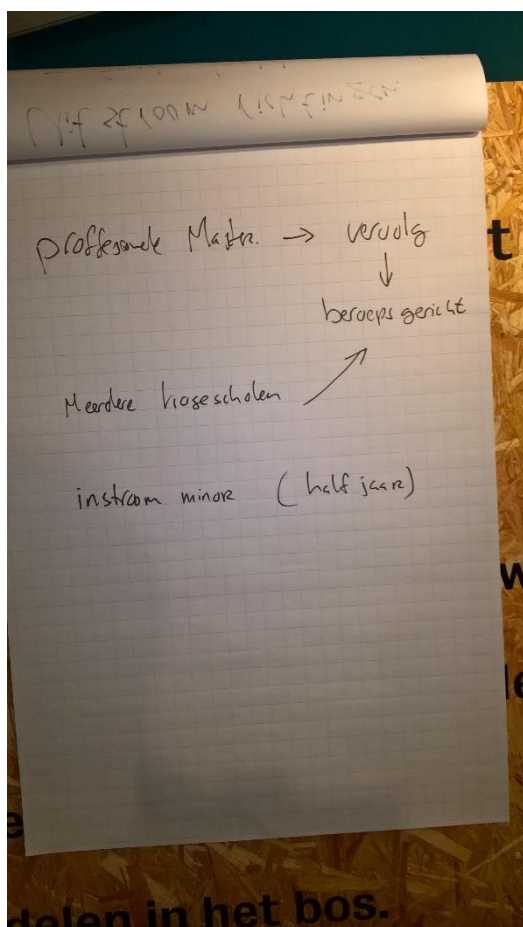 proffesonele Master. → vervolg
↓
beroeps gericht
Meerdere hogescholen ↗
instroom minor (half jaar)
t
w
le
e
delen in het bos.